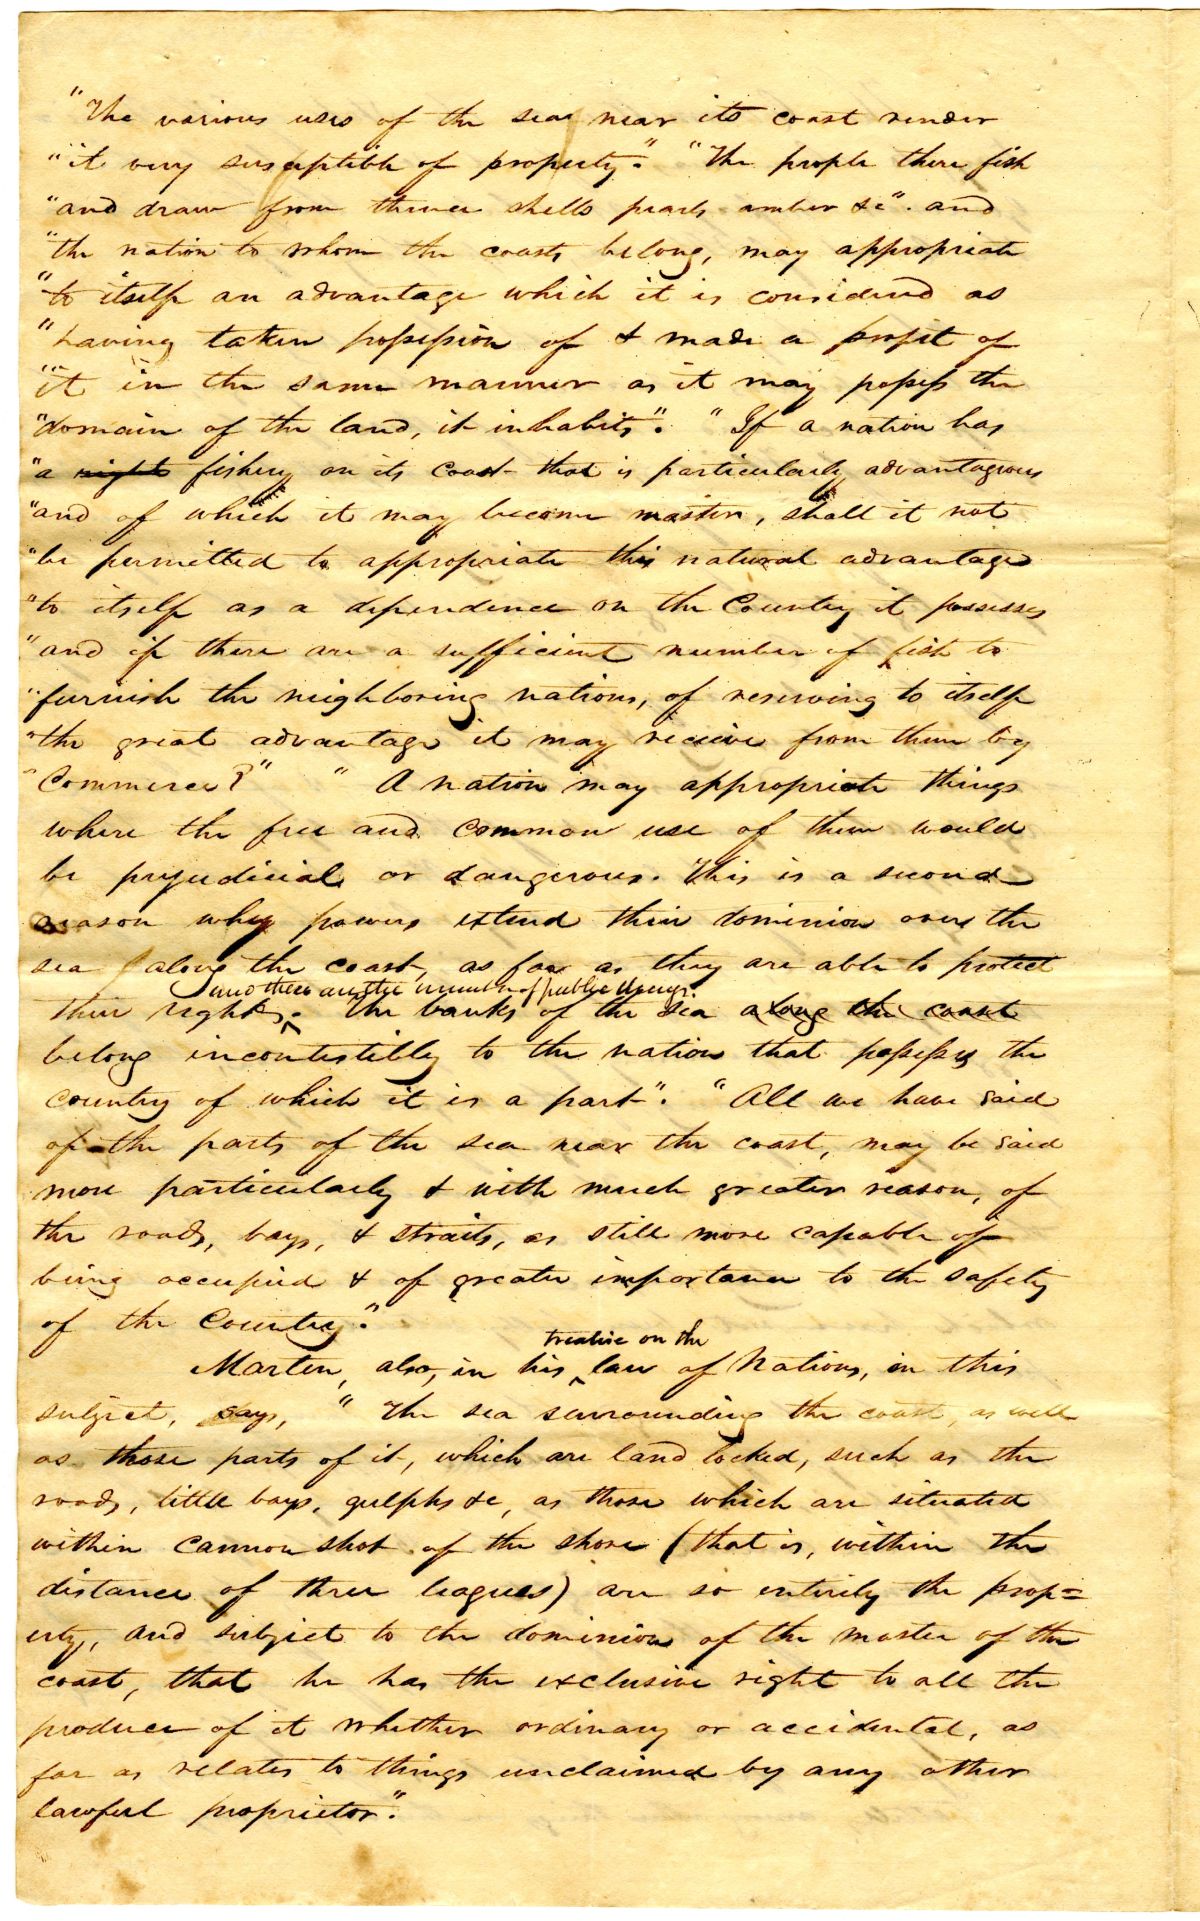 "The various uses of the sea near its coast render
"it very susceptible of property." "The people there fish
"and draw from thence shells pearls amber &c". and
"the nation to whom the coasts belong, may appropriate
"to itself an advantage which it is considered as
"having taken possession of & made a profit of
"it in the same manner as it may possess the
"domain of the land, it inhabits". "If a nation has
"a right fishery on its coast that is particularly advantagious
"and of which it may become master, shall it not
"be permitted to appropriate this natural advantage
"to itself as a dependence on the Country it possesses
"and if there are a sufficient number of fish to
"furnish the neighboring nations, of reserving to itself
"the great advantage it may recieve from them by
"Commerce?" "A nation may appropriate things
where the free and common use of them would
be prejudicial or dangerous. This is a second
reason why powers extend their dominion over the
sea along the coast, as far as they are able to protect
and these are the number of public things.
their rights. The banks of the sea along the coast
belong incontestibly to the nation that possesses the
country of which it is a part". "All we have said
of the parts of the sea near the coast, may be said
more particularly & with much greater reason, of
the roads, bays, & straits, as still more capable of
being occupied & of greater importance to the safety
of the Country."
treatise on the
Marten, also, in his law of Nations, in this
subject, says, "The sea surrounding the coast, as well
as those parts of it, which are land locked, such as the
roads, little bays, gulphs &c, as those which are situated
within cannon shot of the shore (that is, within the
distance of three leagues) are so entirely the prop=
erty, and subject to the dominion of the master of the
coast, that he has the exclusive right to all the
produce of it whether ordinary or accidental, as
far as relates to things unclaimed by any other
lawful proprietor".